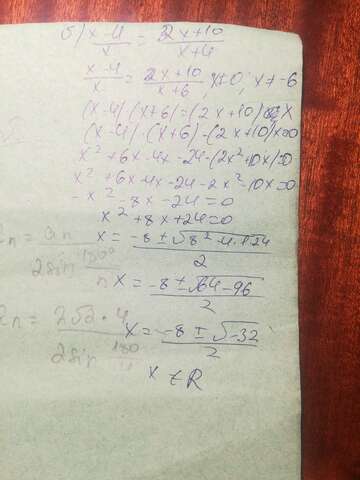 б) x-4/x = 2x+10/x+6
x-4/x = 2x+10/x+6, x≠0; x≠-6
(x-4)(x+6)=(2x+10) x
(x-4)·(x+6)-(2x+10)x=0
x²+6x-4x-24-(2x²+10x)=0
x²+6x-4x-24-2x²-10x=0
-x²-8x-24=0
x²+8x+24=0
x = -8±√8²-4·1·24/2
x = -8±√64-96/2
x = -8±√-32/2
x ∉ R
2sin 180°
2sin 180